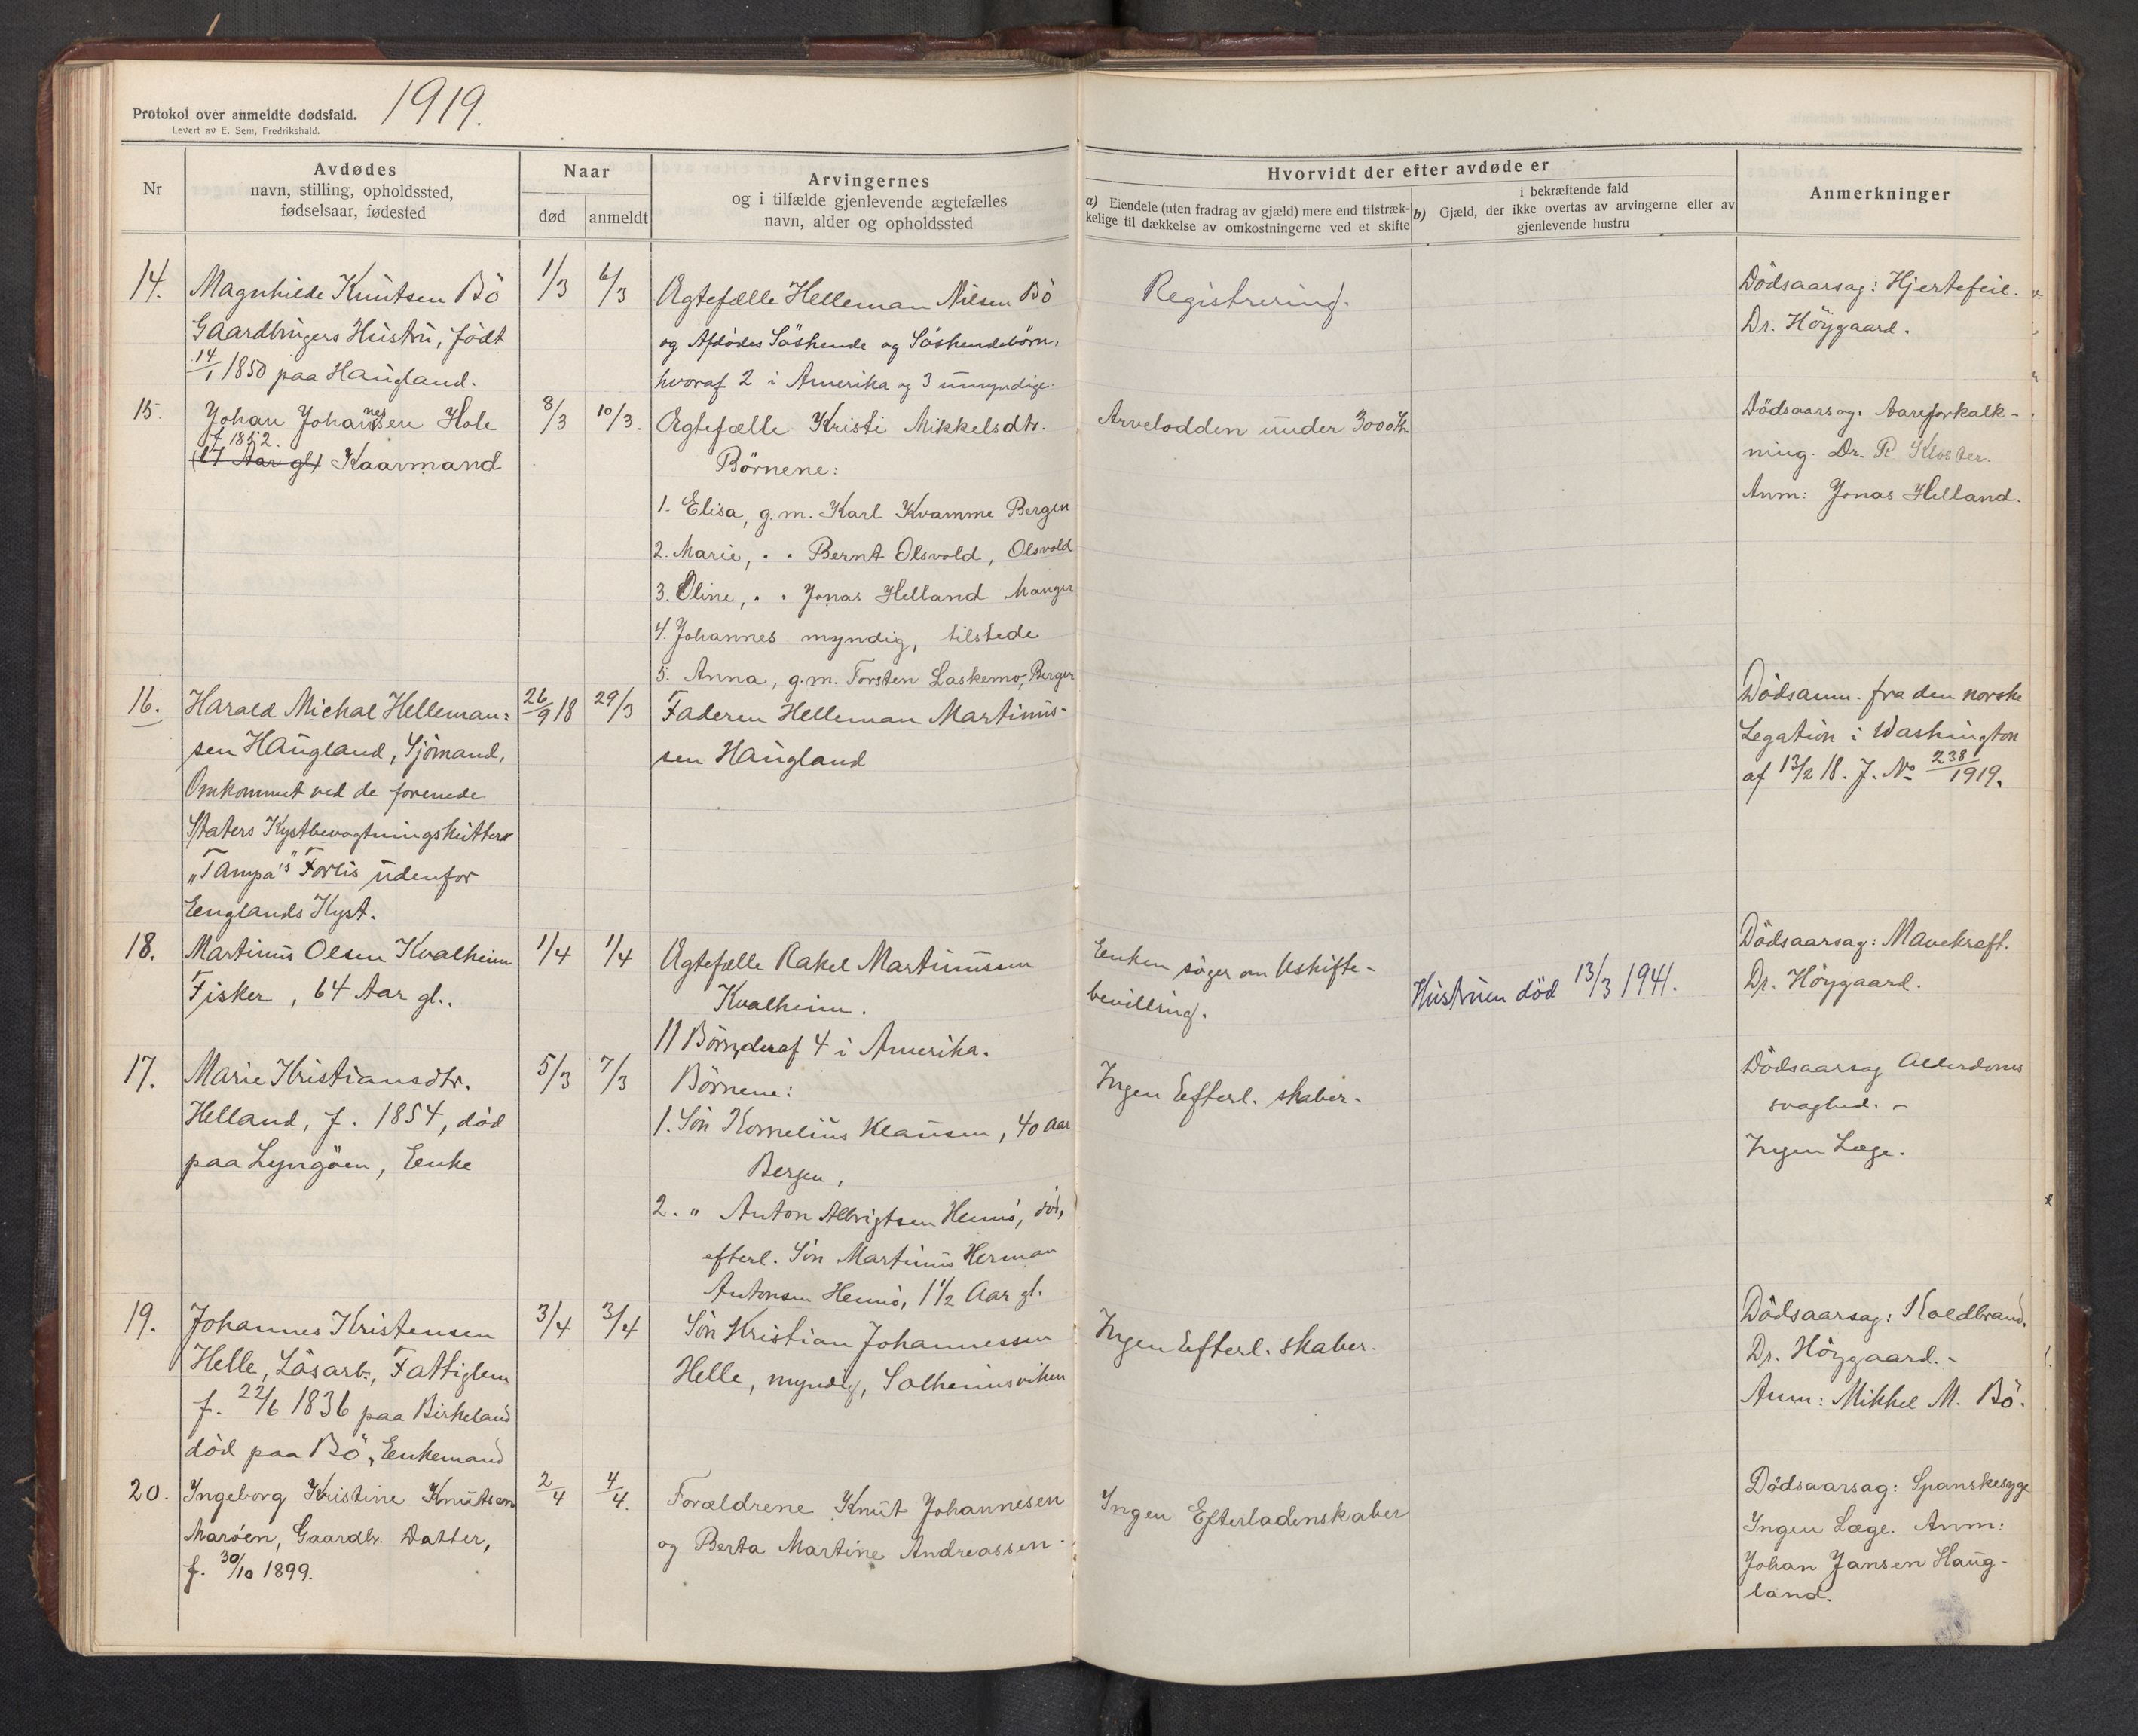 1919.
Protokol over anmeldte dødsfald.
Levert av E. Sem, Fredrikshald.
Nr
Avdødes
navn, stilling, opholdssted,
fødselsaar, fødested
Naar
død
anmeldt
Arvingernes
og i tilfælde gjenlevende ægtefælles
navn, alder og opholdssted
Hvorvidt der efter avdøde er
a) Eiendele (uten fradrag av gjæld) mere end tilstræk-
kelige til dækkelse av omkostningerne ved et skifte
i bekræftende fald
b) Gjæld, der ikke overtas av arvingerne eller av
gjenlevende hustru
Anmerkninger
14.
Magnhilde Knutsen Bö
Gaardbrugers Hustru, födt
14/1 1850 paa Haugland.
1/3
6/3
Ægtefælle Helleman Nilsen Bö
og Afdödes Söskende og Söskendebörn,
hvoraf 2 i Amerika og 3 umyndige.
Registrering.
Dödsaarsag: Hjertefeil.
Dr. Höygaard.
15.
Johan Johannesen Hole
f 1852.
Kaarmand
8/3
10/3.
Ægtefælle Kristi Mikkelsdtr.
Börnene:
1. Elisa, g.m. Karl Kvamme Bergen
2. Marie, " " Bernt Olsvold, Olsvold
3. Oline, " " Jonas Helland Manger
4. Johannes myndig, tilstede
5. Anna, g.m. Torsten Laskemo, Bergen
Arvelodden under 3000 Kr
Dödsaarsag: Aareforkalk-
ning. Dr. R Kloster.
Anm: Jonas Helland.
16.
Harald Michal Helleman-
sen Haugland, Sjömand,
Omkommet ved de forenede
Staters Kystbevogtningskutters
"Tampa's" Forlis udenfor
Englands Kyst.
26/9 18
29/3
Faderen Helleman Martinus-
sen Haugland
Dödsanm. fra den norske
Legation i Washington
af 13/2 18. J. No 238/1919.
18.
Martinus Olsen Kvalheim
Fisker, 64 Aar gl..
1/4
1/4
Ægtefælle Rakel Martinussen
Kvalheim.
11 Börn, deraf 4 i Amerika.
Enken söger om Uskifte-
bevilling.
Hustruen död 13/3 1941.
Dödsaarsag: Mavekreft.
Dr. Höygaard.
17.
Marie Kristiansdtr.
Helland, f. 1854, död
paa Lyngöen, Enke
5/3
7/3
Börnene:
1. Sön Kornelius Klausen, 40 Aar
Bergen,
2. " Anton Albrigtsen Hennö, död,
efterl. Sön Martinus Herman
Antonsen Hennö, 1 1/2 Aar gl.
Ingen Efterl. skaber.
Dödsaarsag Alderdoms
svaghed. -
Ingen Læge.
19.
Johannes Kristensen
Helle, Lösarb., Fattiglem
f. 22/6 1836 paa Birkeland
död paa Bö, Enkemand
3/4
3/4
Sön Kristian Johannessen
Helle, myndig, Solheimsviken
Ingen Efterl. skaber.
Dödsaarsag: Koldbrand.
Dr. Höygaard. -
Anm: Mikkel M. Bö.
20.
Ingeborg Kristine Knutsen
Maröen, Gaardbr. Datter,
f. 30/10 1899.
2/4
4/4.
Forældrene Knut Johannesen
og Berta Martine Andreassen.
Ingen Efterladenskaber
Dödsaarsag: Spanskesyge
Ingen Læge. Anm:
Johan Jansen Haug-
land.